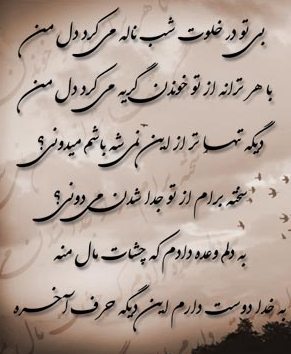 بی تو در خلوت شب ناله می کرد دل من
با هر ترانه از تو خوندن گریه می کرد دل من
دیگه تنها تر از این نمی شه باشم میدونی؟
سخته برام از تو جدا شدن می دونی؟
به دلم وعده دادم که چشات مال منه
به خدا دوست دارم این دیگه حرف آخره